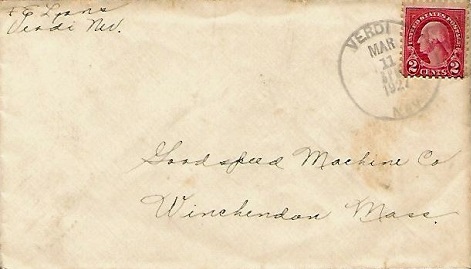 E Lyons
Verdi Nev.
VERDI
MAR
11
1927
NEV.
UNITED STATES POSTAGE
2 CENTS 2
Goodspeed Machine Co
Winchendon Mass.